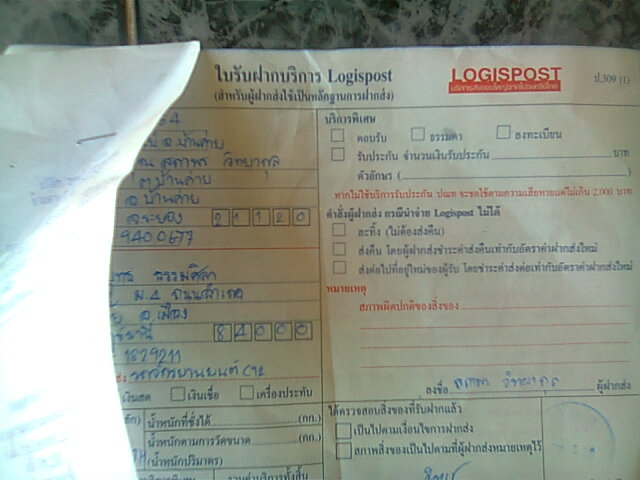 ใบรับฝากบริการ Logispost
(สำหรับผู้ฝากส่งใช้เป็นหลักฐานการฝากส่ง)
LOGISPOST
บริการส่งของใหญ่จากไปรษณีย์ไทย
ป.309 (1)
อ.บ้านค่าย
สุภาพร วิทยากุล
ต.บ้านค่าย
อ.บ้านค่าย
จ.ระยอง 21120
9400677
ธรรมศิลา
ม.4
อ.เมือง
84000
1829211
รถจักรยานยนต์ C12
เงินสด เงินเชื่อ เครื่องประทับ
น้ำหนักที่ชั่งได้ (กก.)
น้ำหนักตามการวัดขนาด (กก.)
(น้ำหนักปริมาตร)
รวมค่าบริการทั้งสิ้น
บริการพิเศษ
ตอบรับ ธรรมดา ลงทะเบียน
รับประกัน จำนวนเงินรับประกัน บาท
ตัวอักษร (
หากไม่ใช้บริการรับประกัน ปณท จะชดใช้ตามความเสียหายแต่ไม่เกิน 2,000 บาท
คำสั่งผู้ฝากส่ง กรณีนำจ่าย Logispost ไม่ได้
ละทิ้ง (ไม่ต้องส่งคืน)
ส่งคืน โดยผู้ฝากส่งชำระค่าส่งคืนเท่ากับอัตราค่าฝากส่งใหม่
ส่งต่อไปที่อยู่ใหม่ของผู้รับ โดยชำระค่าส่งต่อเท่ากับอัตราค่าฝากส่งใหม่
หมายเหตุ
สภาพผิดปกติของสิ่งของ
ลงชื่อ สุภาพร วิทยากุล ผู้ฝากส่ง
ได้ตรวจสอบสิ่งของที่รับฝากแล้ว
เป็นไปตามเงื่อนไขการฝากส่ง
สภาพสิ่งของเป็นไปตามที่ผู้ฝากส่งหมายเหตุไว้